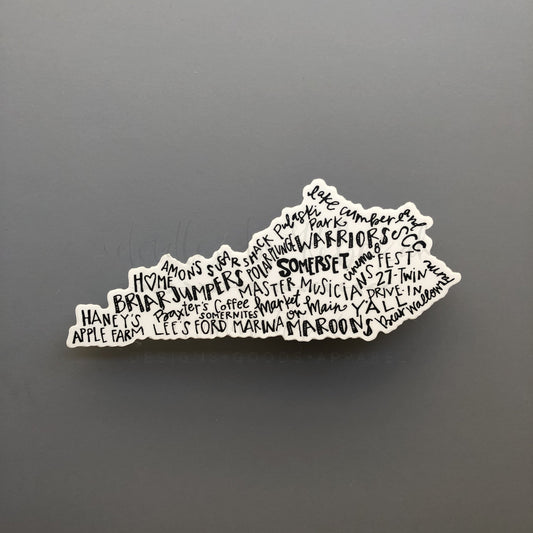 lake cumberland
Pulaski
Park
SCC
WARRIORS
AMON'S SUGAR SHACK
POLAR PLUNGE
SOMERSET
cinema 8
FEST
HOME
BRIAR JUMPERS
MASTER MUSICIANS
27-TWIN
DRIVE-IN
HANEY'S
APPLE FARM
Baxter's Coffee
SOMERNITES
Market
on Main
YALL
Bear Wallow
LEE'S FORD MARINA
MAROONS
DESIGNS